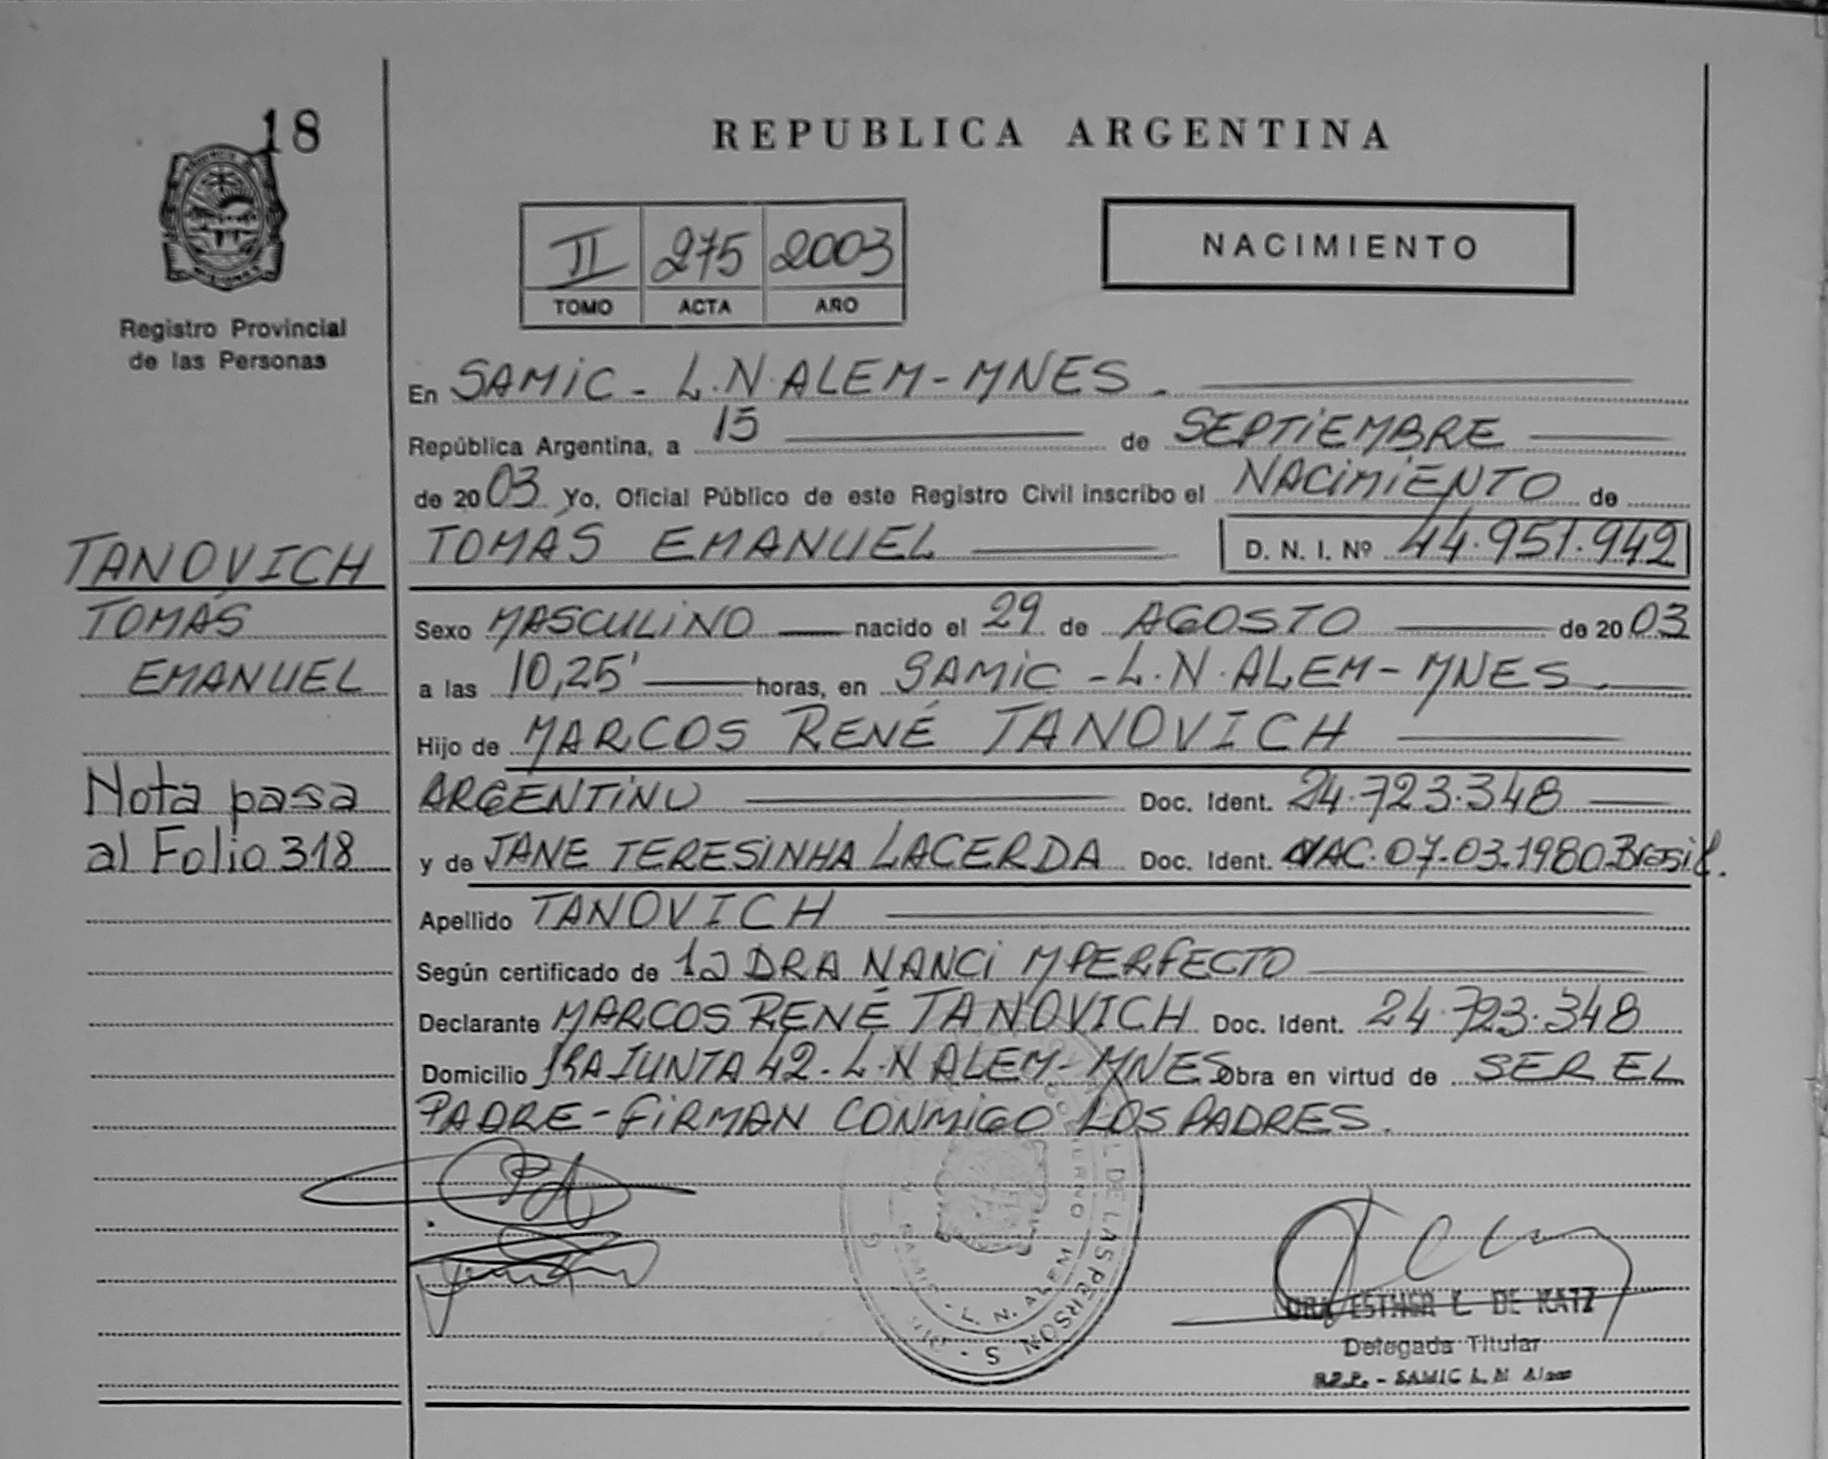 18
REPUBLICA ARGENTINA
II 275 2003
TOMO ACTA AÑO
NACIMIENTO
Registro Provincial
de las Personas
En SAMIC - L.N.ALEM - MNES.
República Argentina, a 15 de SEPTIEMBRE
de 2003 Yo, Oficial Público de este Registro Civil inscribo el NACIMIENTO de
TOMÁS EMANUEL D. N. I. Nº 44.951.942
TANOVICH
TOMÁS
EMANUEL
Sexo MASCULINO nacido el 29 de AGOSTO de 2003
a las 10,25' horas, en SAMIC - L.N.ALEM - MNES.
Hijo de MARCOS RENÉ TANOVICH
ARGENTINO Doc. Ident. 24.723.348
y de JANE TERESINHA LACERDA Doc. Ident. NAC. 07-03-1980 Brasil.
Nota pasa
al Folio 318
Apellido TANOVICH
Según certificado de DRA NANCI M PERFECTO
Declarante MARCOS RENÉ TANOVICH Doc. Ident. 24.723.348
Domicilio 1RA JUNTA 42 - L.N ALEM - MNES Obra en virtud de SER EL
PADRE - FIRMAN CONMIGO LOS PADRES.
DE LAS PERSON S
SAMIC - L. N. ALEM
DRA. ESTHER L. DE KATZ
Delegada Titular
R.P.P. - SAMIC L.N. Alem